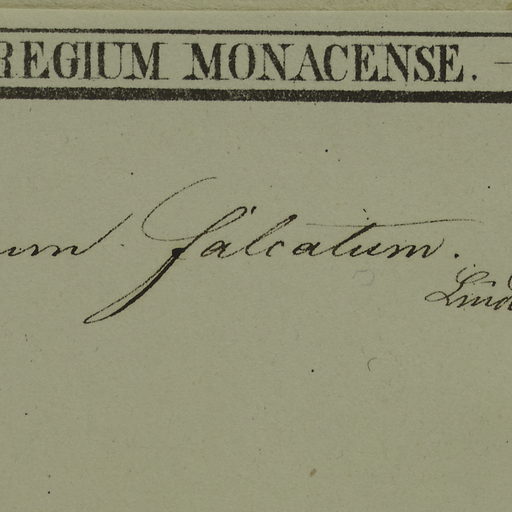 REGIUM MONACENSE. —
um. falcatum.
Lind